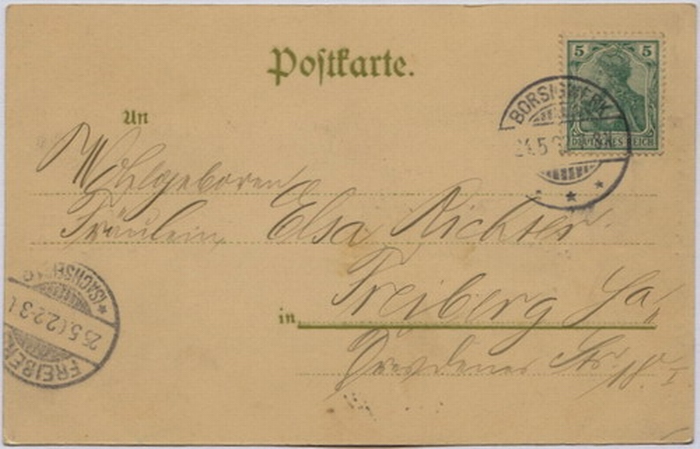 Postkarte.
5 5
DEUTSCHES REICH
BORSIGWERK
24.5.
An
Wohlgeboren
Fräulein Elsa Richter
in Freiberg Sa.
Dresdener Str. 18. I
FREIBERG
(SACHSEN)
25.5.02. 2-3